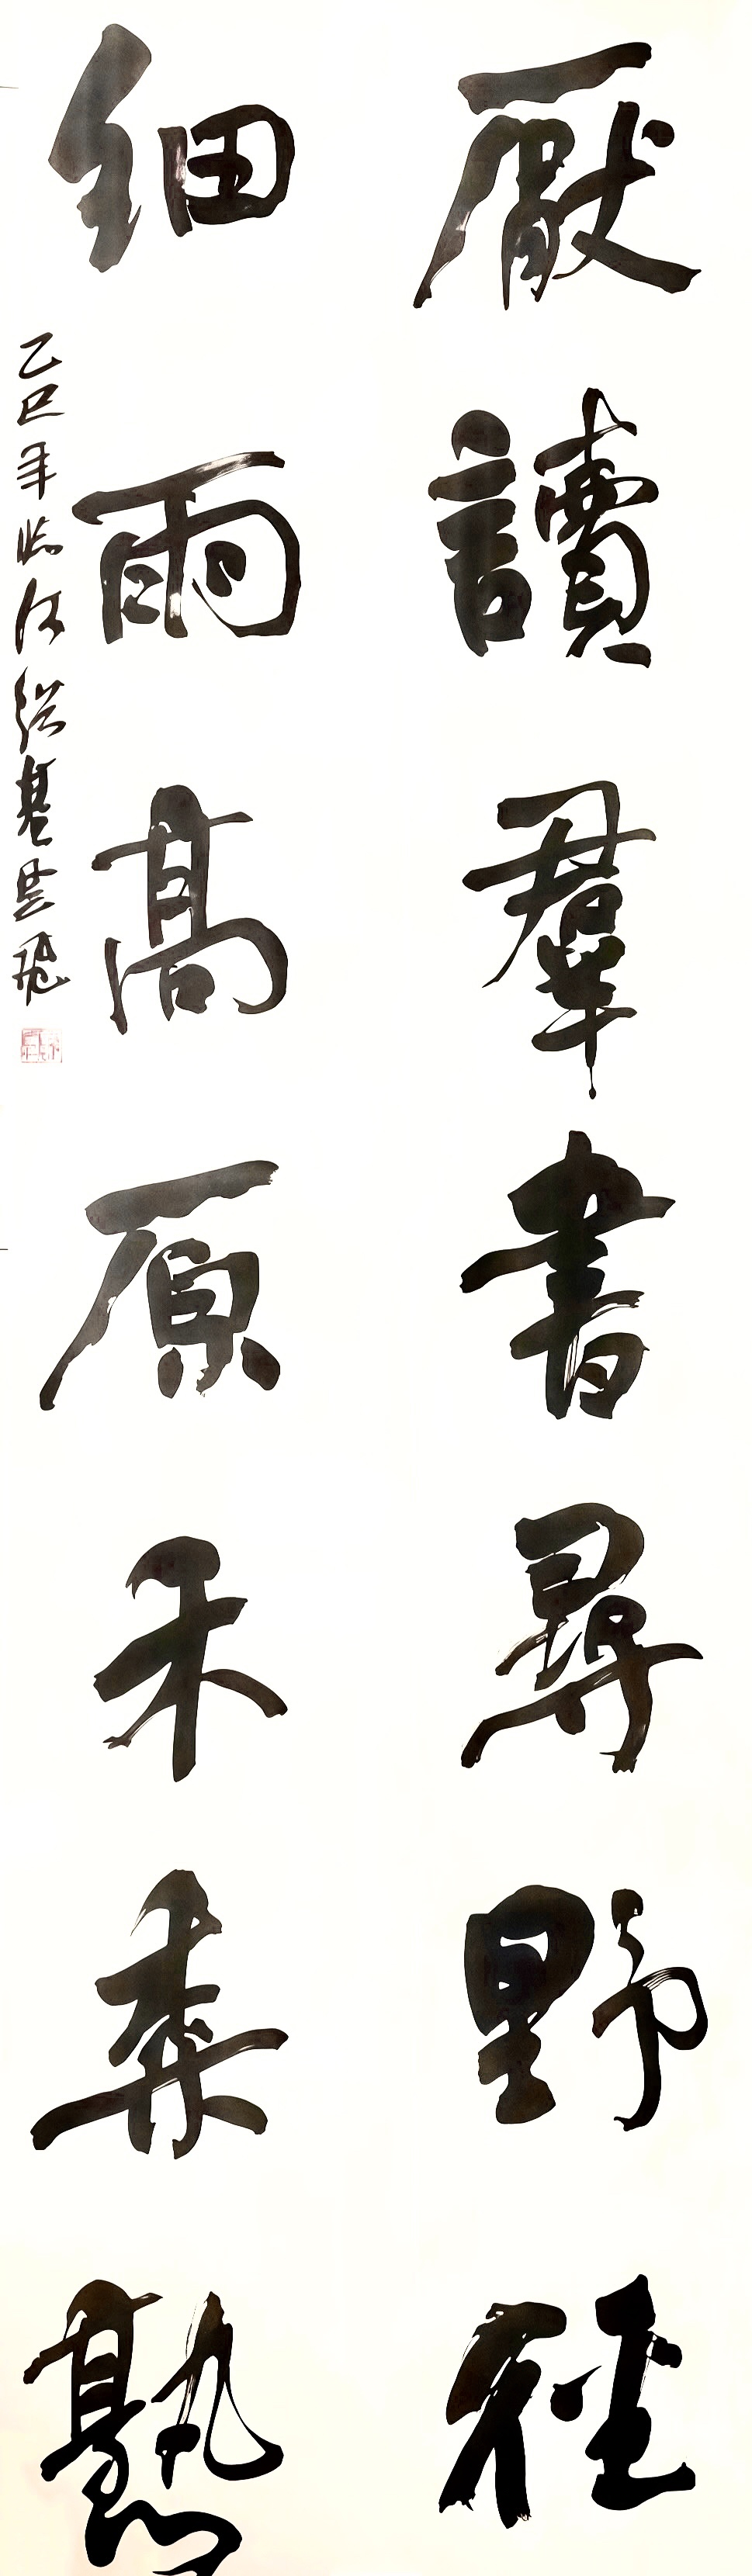 厭讀羣書尋野徑
細雨髙原禾黍熟
乙巳年臨何紹基雲飛